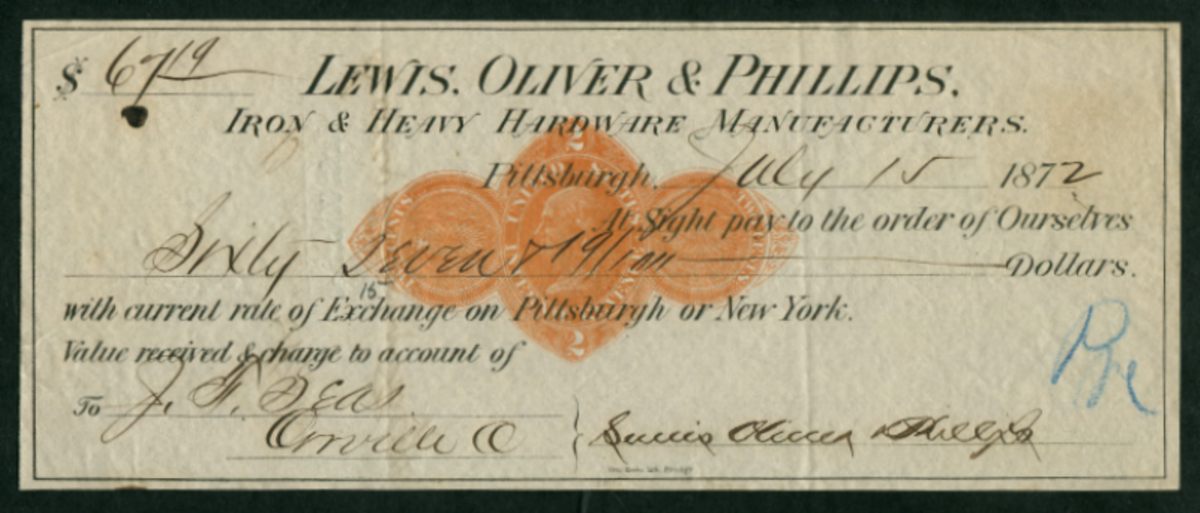 $ 67 19
LEWIS, OLIVER & PHILLIPS,
IRON & HEAVY HARDWARE MANUFACTURERS.
Pittsburgh, July 15 1872
At Sight pay to the order of Ourselves
Sixty Seven & 19/100 Dollars.
15
with current rate of Exchange on Pittsburgh or New York.
Value received & charge to account of
To J. F. Seas
Orrville O
Lewis Oliver & Phillips
2
2